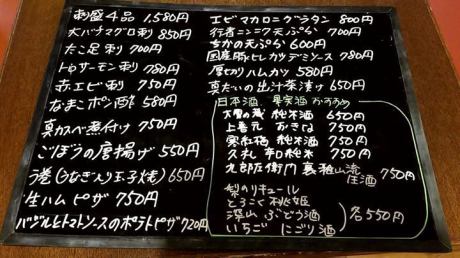 刺盛4品 1,580円
大バチマグロ刺 850円
たこ足刺 700円
サーモン刺 780円
赤エビ刺 750円
なまこポン酢 580円
真カスベ煮付け 750円
ごぼうの唐揚げ 550円
う巻(うなぎ入り玉子焼) 650円
生ハムピザ 750円
バジルとトマトソースのポテトピザ 720円
エビマカロニグラタン 800円
行者ニンニク天ぷら 700円
ちかの天ぷら 600円
国産豚ヒレカツデミソース 780円
厚切りハムカツ 580円
真だいの出汁茶漬け 650円
日本酒、果実酒おすすめ
大雪の蔵 純米酒 650円
上喜元 おきな 750円
寒紅梅 純米酒 750円
久礼 辛口純米 750円
九郎左衛門 裏雅山流 750円
梨のリキュール
とろこく桃姫
深山ぶどう酒
いちごにごり酒
各550円